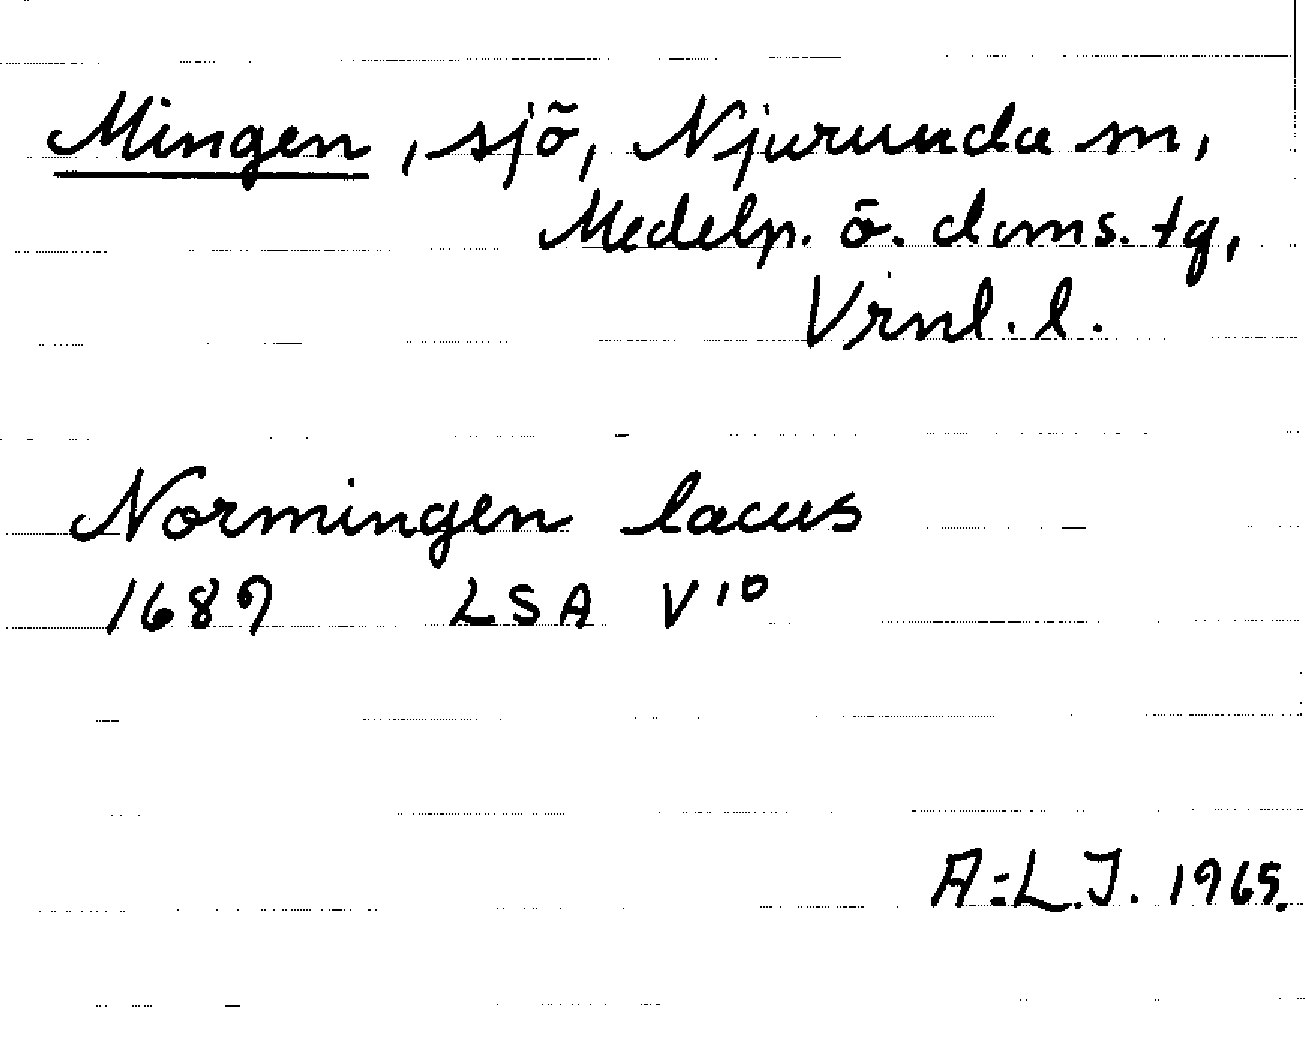 Mingen, sjö, Njurunda sn,
Medelp. ö. doms.tg,
Vrnl. l.
Normingen lacus
1689 LSA V 10
A=L.J. 1965.